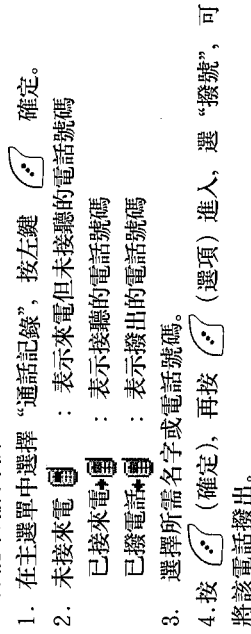 1. 在主選單中選擇 "通話記錄", 按左鍵 確定。
2. 未接來電 : 表示來電但未接聽的電話號碼
已接來電 : 表示接聽的電話號碼
已撥電話 : 表示撥出的電話號碼
3. 選擇所需名字或電話號碼。
4.按 (確定), 再按 (選項) 進入, 選 "撥號", 可
將該電話撥出。